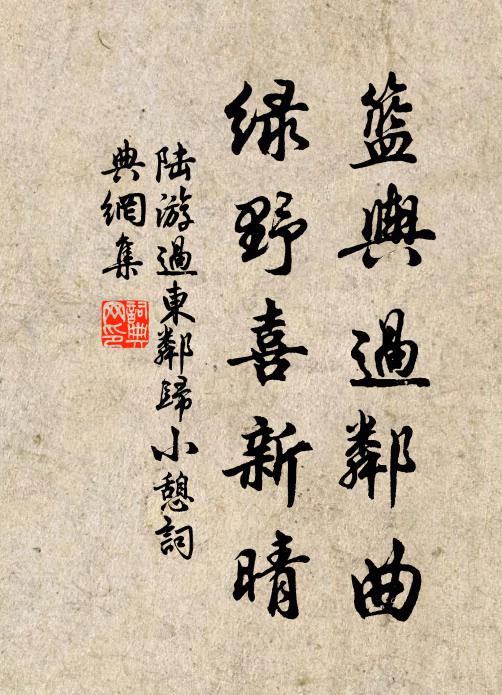 籃輿過鄰曲
緑野喜新晴
陸游過東鄰歸小憩詞
典網集
詞典
网印